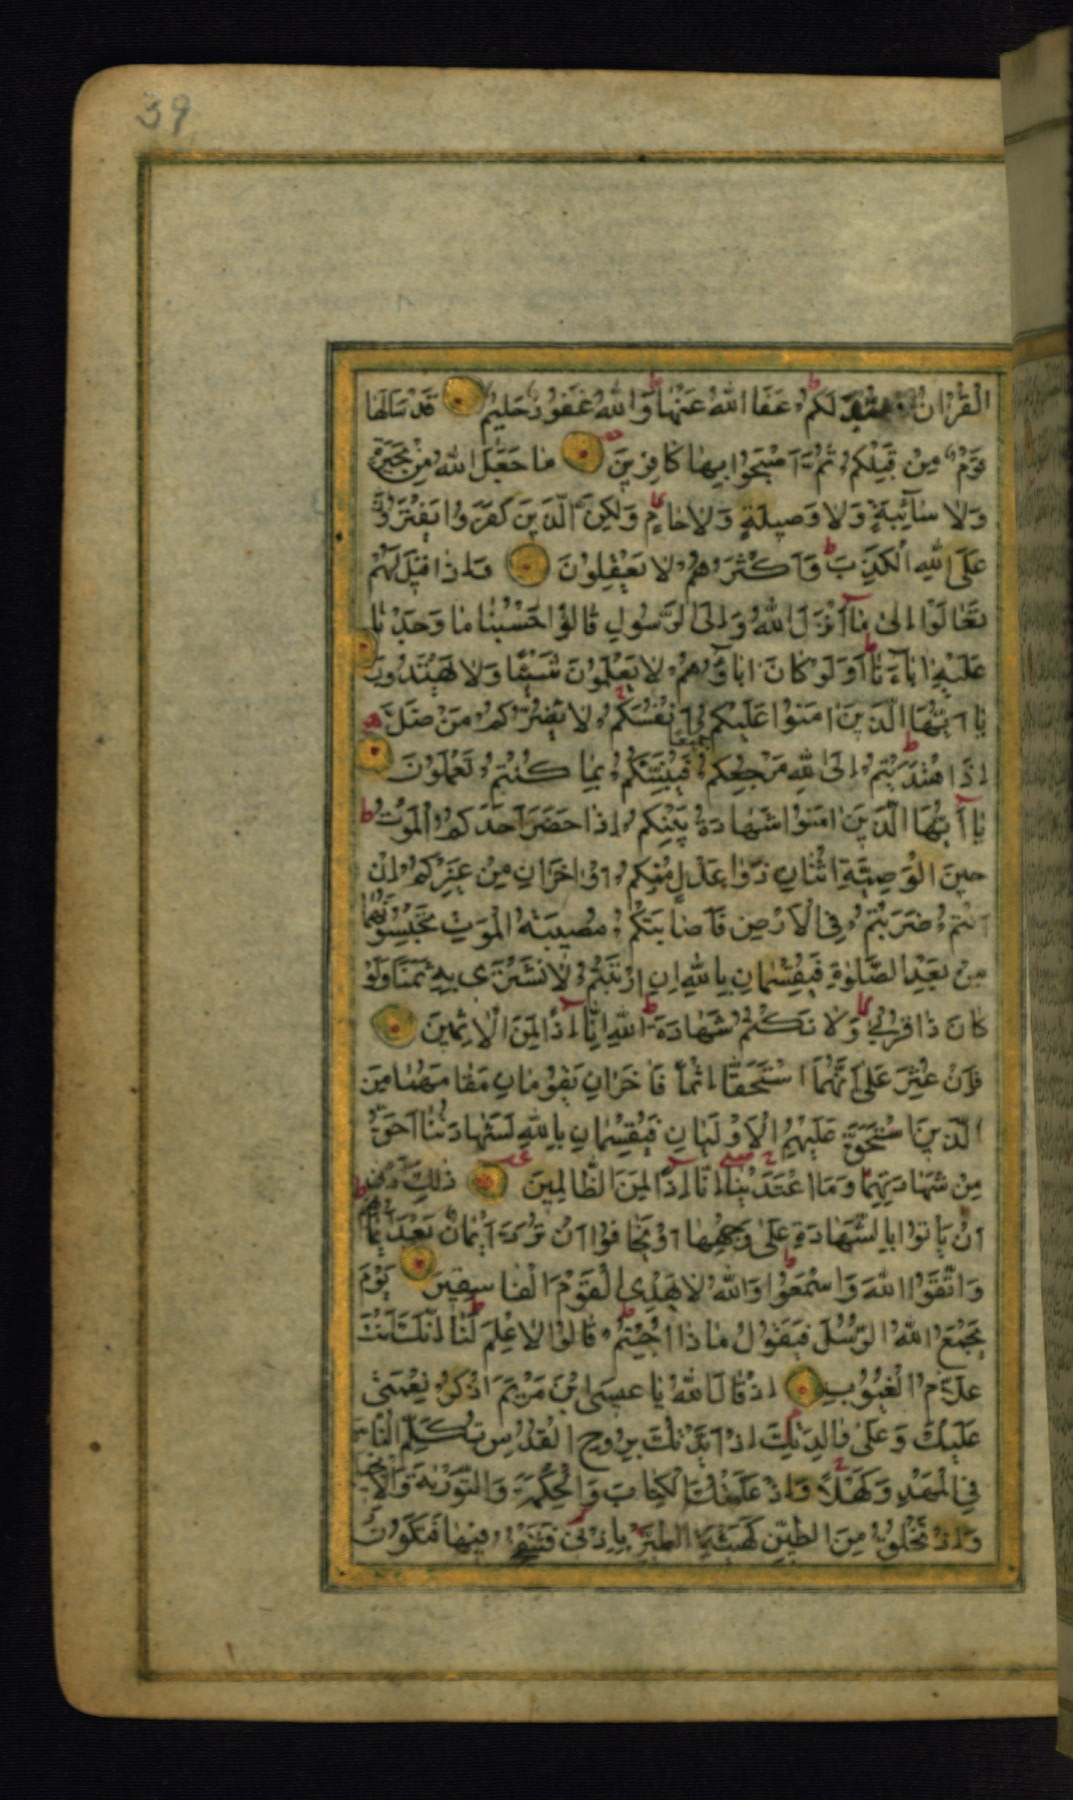 39
الْقُرْاٰنُ تُبْدَ لَكُمْ عَفَا اللّٰهُ عَنْهَا وَاللّٰهُ غَفُورٌ حَلِيمٌ قَدْ سَاَلَهَا
قَوْمٌ مِنْ قَبْلِكُمْ ثُمَّ اَصْبَحُوا بِهَا كَافِرِينَ مَا جَعَلَ اللّٰهُ مِنْ بَحِيرَةٍ
وَلَا سَائِبَةٍ وَلَا وَصِيلَةٍ وَلَا حَامٍ وَلٰكِنَّ الَّذِينَ كَفَرُوا يَفْتَرُونَ
عَلَى اللّٰهِ الْكَذِبَ وَاَكْثَرُهُمْ لَا يَعْقِلُونَ وَاِذَا قِيلَ لَهُمْ
تَعَالَوْا اِلٰى مَا اَنْزَلَ اللّٰهُ وَاِلَى الرَّسُولِ قَالُوا حَسْبُنَا مَا وَجَدْنَا
عَلَيْهِ اٰبَاءَنَا اَوَلَوْ كَانَ اٰبَاؤُهُمْ لَا يَعْلَمُونَ شَيْئًا وَلَا يَهْتَدُونَ
يَا اَيُّهَا الَّذِينَ اٰمَنُوا عَلَيْكُمْ اَنْفُسَكُمْ لَا يَضُرُّكُمْ مَنْ ضَلَّ
اِذَا اهْتَدَيْتُمْ اِلَى اللّٰهِ مَرْجِعُكُمْ جَمِيعًا فَيُنَبِّئُكُمْ بِمَا كُنْتُمْ تَعْمَلُونَ
يَا اَيُّهَا الَّذِينَ اٰمَنُوا شَهَادَةُ بَيْنِكُمْ اِذَا حَضَرَ اَحَدَكُمُ الْمَوْتُ
حِينَ الْوَصِيَّةِ اثْنَانِ ذَوَا عَدْلٍ مِنْكُمْ اَوْ اٰخَرَانِ مِنْ غَيْرِكُمْ اِنْ
اَنْتُمْ ضَرَبْتُمْ فِي الْاَرْضِ فَاَصَابَتْكُمْ مُصِيبَةُ الْمَوْتِ تَحْبِسُونَهُمَا
مِنْ بَعْدِ الصَّلٰوةِ فَيُقْسِمَانِ بِاللّٰهِ اِنِ ارْتَبْتُمْ لَا نَشْتَرِي بِهِ ثَمَنًا وَلَوْ
كَانَ ذَا قُرْبٰى وَلَا نَكْتُمُ شَهَادَةَ اللّٰهِ اِنَّا اِذًا لَمِنَ الْاٰثِمِينَ
فَاِنْ عُثِرَ عَلٰى اَنَّهُمَا اسْتَحَقَّا اِثْمًا فَاٰخَرَانِ يَقُومَانِ مَقَامَهُمَا مِنَ
الَّذِينَ اسْتَحَقَّ عَلَيْهِمُ الْاَوْلَيَانِ فَيُقْسِمَانِ بِاللّٰهِ لَشَهَادَتُنَا اَحَقُّ
مِنْ شَهَادَتِهِمَا وَمَا اعْتَدَيْنَا اِنَّا اِذًا لَمِنَ الظَّالِمِينَ ذٰلِكَ اَدْنٰى
اَنْ يَاْتُوا بِالشَّهَادَةِ عَلٰى وَجْهِهَا اَوْ يَخَافُوا اَنْ تُرَدَّ اَيْمَانٌ بَعْدَ اَيْمَانِهِمْ
وَاتَّقُوا اللّٰهَ وَاسْمَعُوا وَاللّٰهُ لَا يَهْدِي الْقَوْمَ الْفَاسِقِينَ يَوْمَ
يَجْمَعُ اللّٰهُ الرُّسُلَ فَيَقُولُ مَاذَا اُجِبْتُمْ قَالُوا لَا عِلْمَ لَنَا اِنَّكَ اَنْتَ
عَلَّامُ الْغُيُوبِ اِذْ قَالَ اللّٰهُ يَا عِيسَى ابْنَ مَرْيَمَ اذْكُرْ نِعْمَتِي
عَلَيْكَ وَعَلٰى وَالِدَتِكَ اِذْ اَيَّدْتُكَ بِرُوحِ الْقُدُسِ تُكَلِّمُ النَّاسَ
فِي الْمَهْدِ وَكَهْلًا وَاِذْ عَلَّمْتُكَ الْكِتَابَ وَالْحِكْمَةَ وَالتَّوْرٰيةَ وَالْاِنْجِيلَ
وَاِذْ تَخْلُقُ مِنَ الطِّينِ كَهَيْئَةِ الطَّيْرِ بِاِذْنِي فَتَنْفُخُ فِيهَا فَتَكُونُ